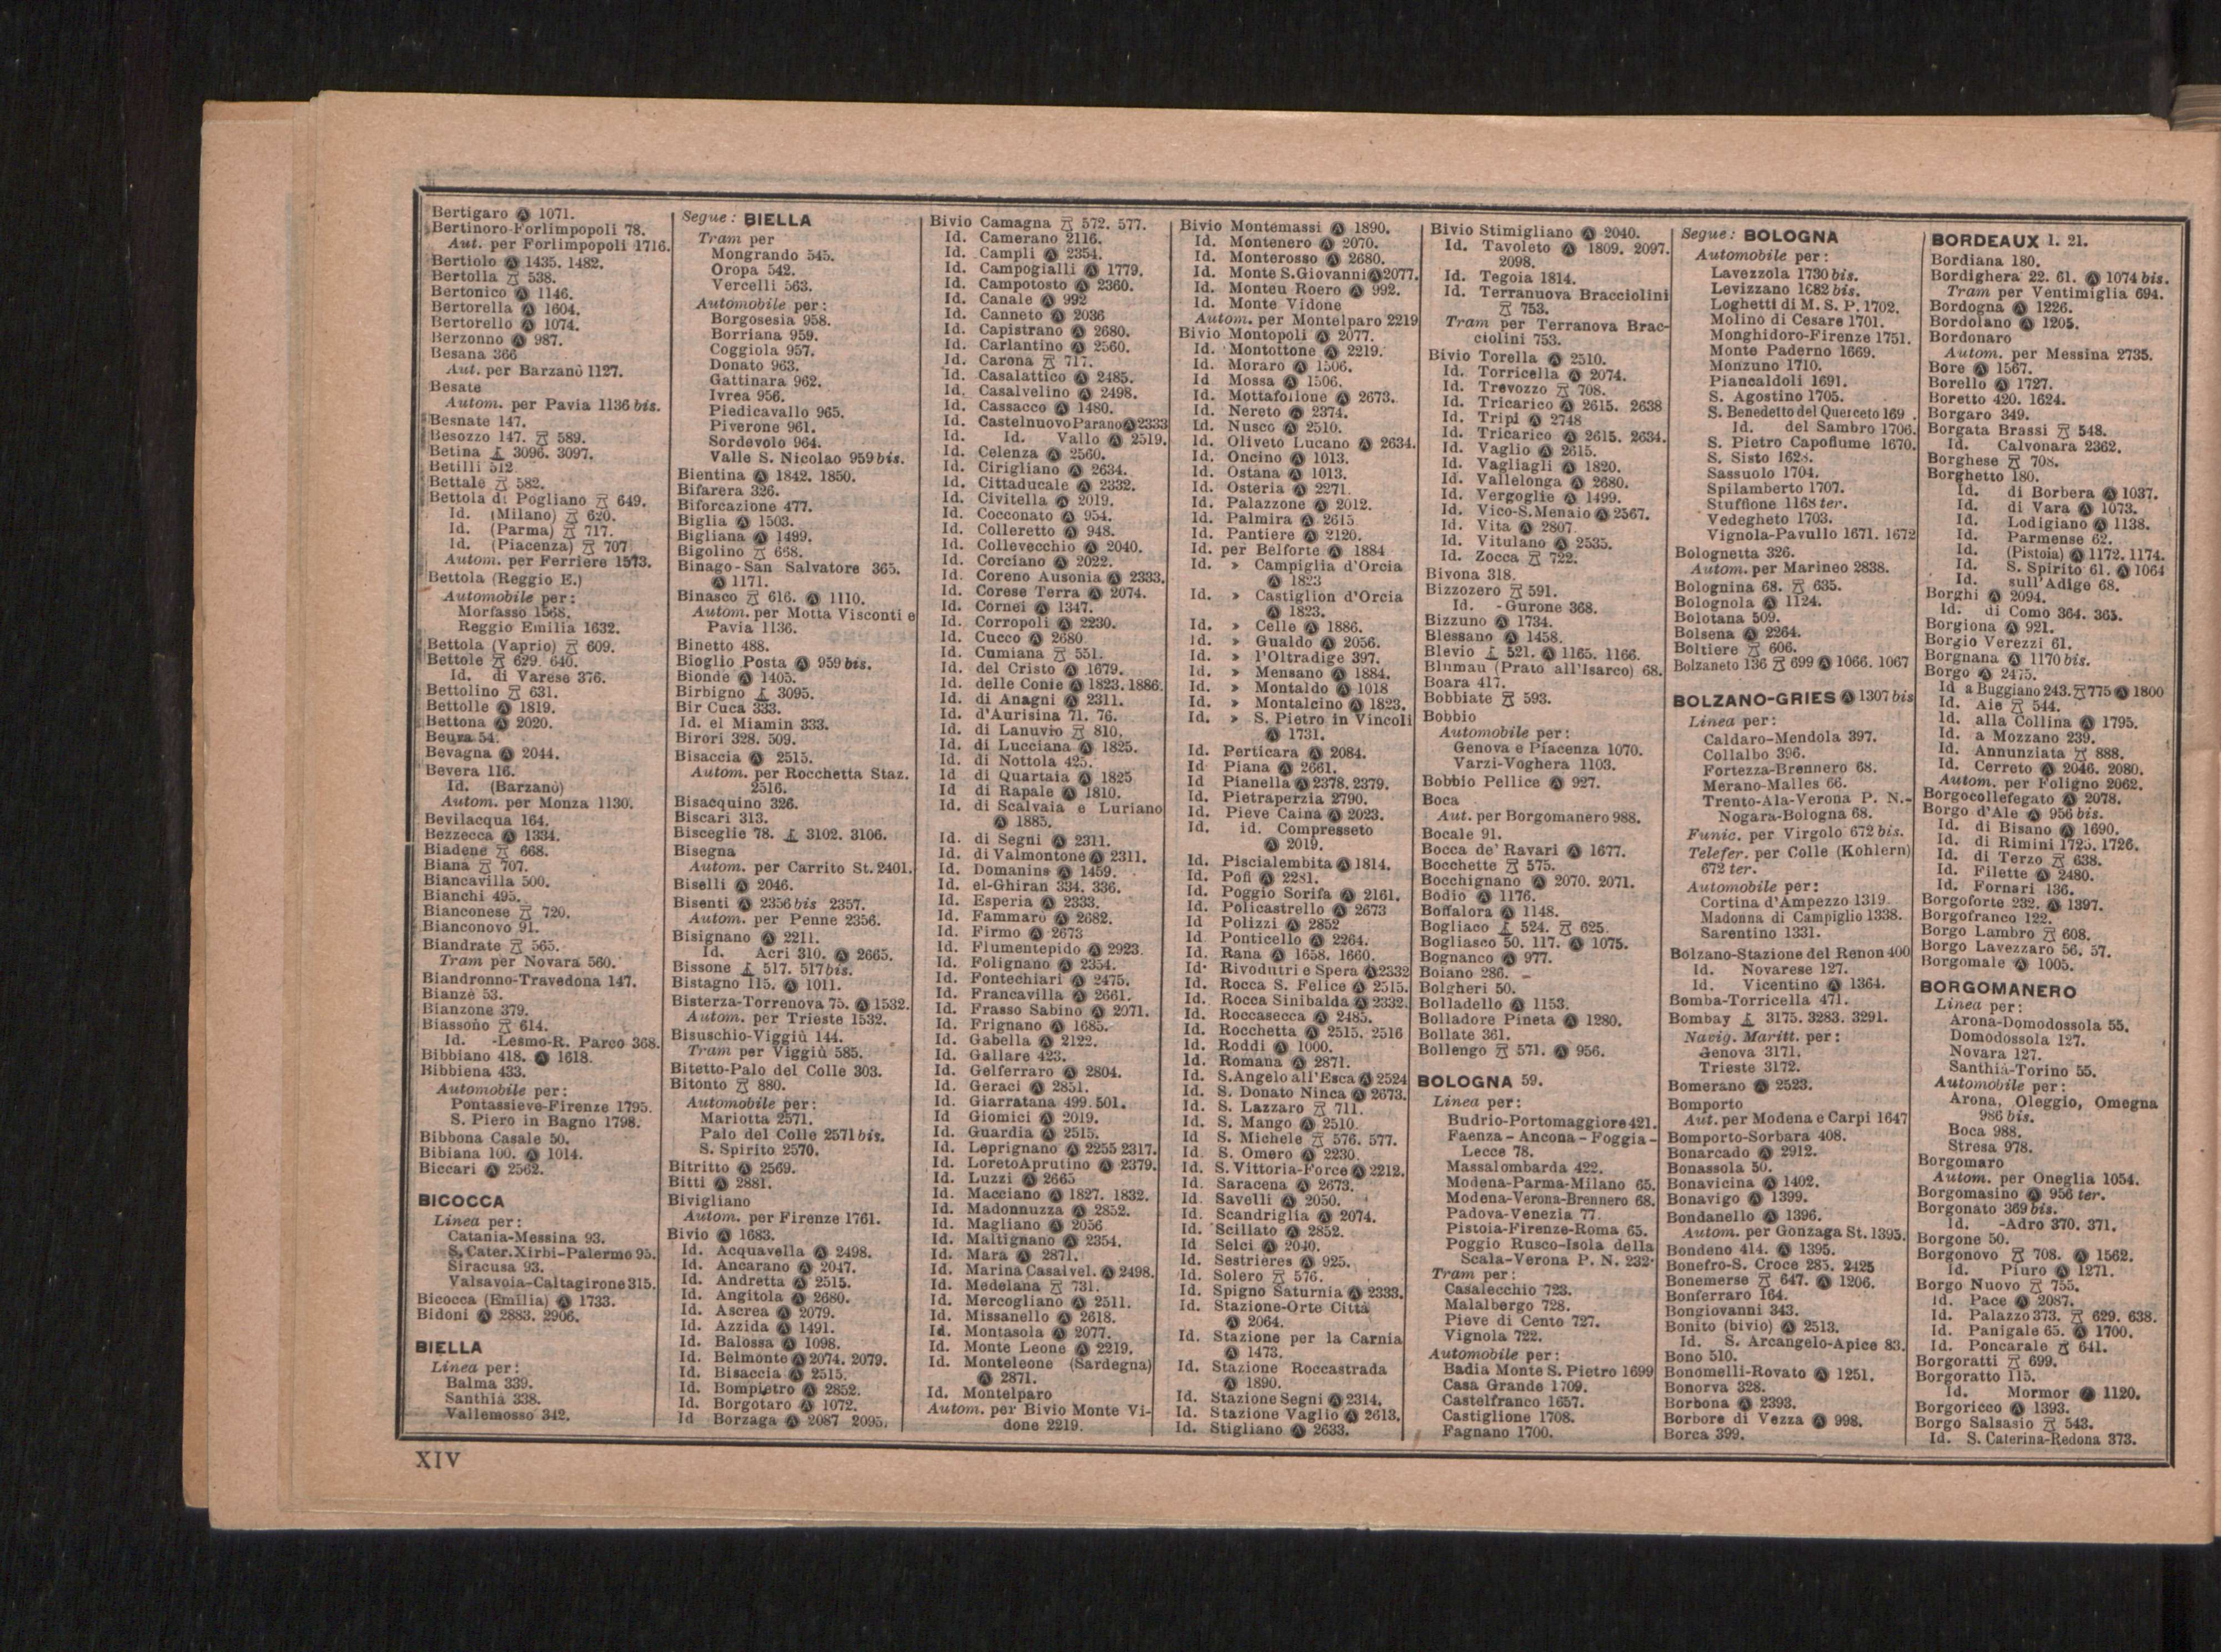 Bertigaro Ⓐ 1071.
Bertinoro-Forlimpopoli 78.
Aut. per Forlimpopoli 1716.
Bertiolo Ⓐ 1435. 1482.
Bertolla 538.
Bertonico Ⓐ 1146.
Bertorella Ⓐ 1604.
Bertorello Ⓐ 1074.
Berzonno Ⓐ 987.
Besana 366
Aut. per Barzanò 1127.
Besate
Autom. per Pavia 1136 bis.
Besnate 147.
Besozzo 147. 589.
Betina 3096. 3097.
Betilli 512.
Bettale 582.
Bettola di Pogliano 649.
Id. (Milano) 620.
Id. (Parma) 717.
Id. (Piacenza) 707
Autom. per Ferriere 1573.
Bettola (Reggio E.)
Automobile per:
Morfasso 1568.
Reggio Emilia 1632.
Bettola (Vaprio) 609.
Bettole 629. 640.
Id. di Varese 376.
Bettolino 631.
Bettolle Ⓐ 1819.
Bettona Ⓐ 2020.
Beura 54.
Bevagna Ⓐ 2044.
Bevera 116.
Id. (Barzanò)
Autom. per Monza 1130.
Bevilacqua 164.
Bezzecca Ⓐ 1334.
Biadene 668.
Biana 707.
Biancavilla 500.
Bianchi 495.
Bianconese 720.
Bianconovo 91.
Biandrate 565.
Tram per Novara 560.
Biandronno-Travedona 147.
Bianzè 53.
Bianzone 379.
Biassono 614.
Id. -Lesmo-R. Parco 368.
Bibbiano 418. Ⓐ 1618.
Bibbiena 433.
Automobile per:
Pontassieve-Firenze 1795.
S. Piero in Bagno 1798.
Bibbona Casale 50.
Bibiana 100. Ⓐ 1014.
Biccari Ⓐ 2562.
BICOCCA
Linea per:
Catania-Messina 93.
S. Cater.Xirbi-Palermo 95.
Siracusa 93.
Valsavoia-Caltagirone 315.
Bicocca (Emilia) Ⓐ 1733.
Bidoni Ⓐ 2883. 2906.
BIELLA
Linea per:
Balma 339.
Santhià 338.
Vallemosso 342.
Segue: BIELLA
Tram per
Mongrando 545.
Oropa 542.
Vercelli 563.
Automobile per:
Borgosesia 958.
Borriana 959.
Coggiola 957.
Donato 963.
Gattinara 962.
Ivrea 956.
Piedicavallo 965.
Piverone 961.
Sordevolo 964.
Valle S. Nicolao 959 bis.
Bientina Ⓐ 1842. 1850.
Bifarera 326.
Biforcazione 477.
Biglia Ⓐ 1503.
Bigliana Ⓐ 1499.
Bigolino 668.
Binago-San Salvatore 365.
Ⓐ 1171.
Binasco 616. Ⓐ 1110.
Autom. per Motta Visconti e
Pavia 1136.
Binetto 488.
Bioglio Posta Ⓐ 959 bis.
Bionde Ⓐ 1405.
Birbigno 3095.
Bir Cuca 333.
Id. el Miamin 333.
Birori 328. 509.
Bisaccia Ⓐ 2515.
Autom. per Rocchetta Staz.
2516.
Bisacquino 326.
Biscari 313.
Bisceglie 78. 3102. 3106.
Bisegna
Autom. per Carrito St. 2401.
Biselli Ⓐ 2046.
Bisenti Ⓐ 2356 bis 2357.
Autom. per Penne 2356.
Bisignano Ⓐ 2211.
Id. Acri 310. Ⓐ 2665.
Bissone 517. 517 bis.
Bistagno 115. Ⓐ 1011.
Bisterza-Torrenova 75. Ⓐ 1532.
Autom. per Trieste 1532.
Bisuschio-Viggiù 144.
Tram per Viggiù 585.
Bitetto-Palo del Colle 303.
Bitonto 880.
Automobile per:
Mariotta 2571.
Palo del Colle 2571 bis.
S. Spirito 2570.
Bitritto Ⓐ 2569.
Bitti Ⓐ 2881.
Bivigliano
Autom. per Firenze 1761.
Bivio Ⓐ 1683.
Id. Acquavella Ⓐ 2498.
Id. Ancarano Ⓐ 2047.
Id. Andretta Ⓐ 2515.
Id. Angitola Ⓐ 2680.
Id. Ascrea Ⓐ 2079.
Id. Azzida Ⓐ 1491.
Id. Balossa Ⓐ 1098.
Id. Belmonte Ⓐ 2074. 2079.
Id. Bisaccia Ⓐ 2515.
Id. Bompietro Ⓐ 2852.
Id. Borgotaro Ⓐ 1072.
Id Borzaga Ⓐ 2087 2095.
Bivio Camagna 572. 577.
Id. Camerano 2116.
Id. Campli Ⓐ 2354.
Id. Campogialli Ⓐ 1779.
Id. Campotosto Ⓐ 2360.
Id. Canale Ⓐ 992
Id. Canneto Ⓐ 2036
Id. Capistrano Ⓐ 2680.
Id. Carlantino Ⓐ 2560.
Id. Carona 717.
Id. Casalattico Ⓐ 2485.
Id. Casalvelino Ⓐ 2498.
Id. Cassacco Ⓐ 1480.
Id. Castelnuovo Parano Ⓐ 2333
Id. Id. Vallo Ⓐ 2519.
Id. Celenza Ⓐ 2560.
Id. Cirigliano Ⓐ 2634.
Id. Cittaducale Ⓐ 2332.
Id. Civitella Ⓐ 2019.
Id. Cocconato Ⓐ 954.
Id. Colleretto Ⓐ 948.
Id. Collevecchio Ⓐ 2040.
Id. Corciano Ⓐ 2022.
Id. Coreno Ausonia Ⓐ 2333.
Id. Corese Terra Ⓐ 2074.
Id. Cornei Ⓐ 1347.
Id. Corropoli Ⓐ 2230.
Id. Cucco Ⓐ 2680.
Id. Cumiana 551.
Id. del Cristo Ⓐ 1679.
Id. delle Conie Ⓐ 1823. 1886.
Id. di Anagni Ⓐ 2311.
Id. d'Aurisina 71. 76.
Id. di Lanuvio 810.
Id. di Lucciana Ⓐ 1825.
Id. di Nottola 425.
Id di Quartaia Ⓐ 1825
Id di Rapale Ⓐ 1810.
Id. di Scalvaia e Luriano
Ⓐ 1885.
Id. di Segni Ⓐ 2311.
Id. di Valmontone Ⓐ 2311.
Id. Domanins Ⓐ 1459.
Id. el-Ghiran 334. 336.
Id. Esperia Ⓐ 2333.
Id. Fammaro Ⓐ 2682.
Id. Firmo Ⓐ 2673
Id. Flumentepido Ⓐ 2923.
Id. Folignano Ⓐ 2354.
Id. Fontechiari Ⓐ 2475.
Id. Francavilla Ⓐ 2661.
Id. Frasso Sabino Ⓐ 2071.
Id. Frignano Ⓐ 1685.
Id. Gabella Ⓐ 2122.
Id. Gallare 423.
Id. Gelferraro Ⓐ 2804.
Id. Geraci Ⓐ 2851.
Id. Giarratana 499. 501.
Id Giomici Ⓐ 2019.
Id. Guardia Ⓐ 2515.
Id. Leprignano Ⓐ 2255 2317.
Id. Loreto Aprutino Ⓐ 2379.
Id. Luzzi Ⓐ 2665
Id. Macciano Ⓐ 1827. 1832.
Id. Madonnuzza Ⓐ 2852.
Id. Magliano Ⓐ 2056
Id. Maltignano Ⓐ 2354.
Id. Mara Ⓐ 2871.
Id. Marina Casalvel. Ⓐ 2498.
Id. Medelana 731.
Id. Mercogliano Ⓐ 2511.
Id. Missanello Ⓐ 2618.
Id. Montasola Ⓐ 2077.
Id. Monte Leone Ⓐ 2219.
Id. Monteleone (Sardegna)
Ⓐ 2871.
Id. Montelparo
Autom. per Bivio Monte Vi-
done 2219.
Bivio Montemassi Ⓐ 1890.
Id. Montenero Ⓐ 2070.
Id. Monterosso Ⓐ 2680.
Id. Monte S.Giovanni Ⓐ 2077.
Id. Monteu Roero Ⓐ 992.
Id. Monte Vidone
Autom. per Montelparo 2219
Bivio Montopoli Ⓐ 2077.
Id. Montottone Ⓐ 2219.
Id. Moraro Ⓐ 1506.
Id Mossa Ⓐ 1506.
Id. Mottafollone Ⓐ 2673.
Id. Nereto Ⓐ 2374.
Id. Nusco Ⓐ 2510.
Id. Oliveto Lucano Ⓐ 2634.
Id. Oncino Ⓐ 1013.
Id. Ostana Ⓐ 1013.
Id. Osteria Ⓐ 2271.
Id. Palazzone Ⓐ 2012.
Id. Palmira Ⓐ 2615.
Id. Pantiere Ⓐ 2120.
Id. per Belforte Ⓐ 1884
Id. » Campiglia d'Orcia
Ⓐ 1823
Id. » Castiglion d'Orcia
Ⓐ 1823.
Id. » Celle Ⓐ 1886.
Id. » Gualdo Ⓐ 2056.
Id. » l'Oltradige 397.
Id. » Mensano Ⓐ 1884.
Id. » Montaldo Ⓐ 1018
Id. » Montalcino Ⓐ 1823.
Id. » S. Pietro in Vincoli
Ⓐ 1731.
Id. Perticara Ⓐ 2084.
Id Piana Ⓐ 2661.
Id Pianella Ⓐ 2378. 2379.
Id. Pietraperzia 2790.
Id. Pieve Caina Ⓐ 2023.
Id. id. Compresseto
Ⓐ 2019.
Id. Piscialembita Ⓐ 1814.
Id. Pofi Ⓐ 2281.
Id. Poggio Sorifa Ⓐ 2161.
Id. Policastrello Ⓐ 2673
Id Polizzi Ⓐ 2852
Id Ponticello Ⓐ 2264.
Id. Rana Ⓐ 1658. 1660.
Id· Rivodutri e Spera Ⓐ 2332
Id. Rocca S. Felice Ⓐ 2515.
Id. Rocca Sinibalda Ⓐ 2332.
Id. Roccasecca Ⓐ 2485.
Id. Rocchetta Ⓐ 2515. 2516
Id. Roddi Ⓐ 1000.
Id. Romana Ⓐ 2871.
Id. S.Angelo all'Esca Ⓐ 2524
Id. S. Donato Ninca Ⓐ 2673.
Id. S. Lazzaro 711.
Id. S. Mango Ⓐ 2510.
Id S. Michele 576. 577.
Id. S. Omero Ⓐ 2230.
Id. S. Vittoria-Force Ⓐ 2212.
Id. Saracena Ⓐ 2673.
Id. Savelli Ⓐ 2050.
Id. Scandriglia Ⓐ 2074.
Id. Scillato Ⓐ 2852.
Id Selci Ⓐ 2040.
Id. Sestrieres Ⓐ 925.
Id. Solero 576.
Id. Spigno Saturnia Ⓐ 2333.
Id. Stazione-Orte Città
Ⓐ 2064.
Id. Stazione per la Carnia
Ⓐ 1473.
Id. Stazione Roccastrada
Ⓐ 1890.
Id. Stazione Segni Ⓐ 2314.
Id. Stazione Vaglio Ⓐ 2613.
Id. Stigliano Ⓐ 2633.
Bivio Stimigliano Ⓐ 2040.
Id. Tavoleto Ⓐ 1809. 2097.
2098.
Id. Tegoia 1814.
Id. Terranuova Bracciolini
753.
Tram per Terranova Brac-
ciolini 753.
Bivio Torella Ⓐ 2510.
Id. Torricella Ⓐ 2074.
Id. Trevozzo 708.
Id. Tricarico Ⓐ 2615. 2638
Id. Tripi Ⓐ 2748
Id. Tricarico Ⓐ 2615. 2634.
Id. Vaglio Ⓐ 2615.
Id. Vagliagli Ⓐ 1820.
Id. Vallelonga Ⓐ 2680.
Id. Vergoglie Ⓐ 1499.
Id. Vico-S.Menaio Ⓐ 2567.
Id. Vita Ⓐ 2807
Id. Vitulano Ⓐ 2535.
Id. Zocca 722.
Bivona 318.
Bizzozero 591.
Id. -Gurone 368.
Bizzuno Ⓐ 1734.
Blessano Ⓐ 1458.
Blevio 521. Ⓐ 1165. 1166.
Blumau (Prato all'Isarco) 68.
Boara 417.
Bobbiate 593.
Bobbio
Automobile per:
Genova e Piacenza 1070.
Varzi-Voghera 1103.
Bobbio Pellice Ⓐ 927.
Boca
Aut. per Borgomanero 988.
Bocale 91.
Bocca de' Ravari Ⓐ 1677.
Bocchette 575.
Bocchignano Ⓐ 2070. 2071.
Bodio Ⓐ 1176.
Boffalora Ⓐ 1148.
Bogliaco 524. 625.
Bogliasco 50. 117. Ⓐ 1075.
Bognanco Ⓐ 977.
Boiano 286.
Bolgheri 50.
Bolladello Ⓐ 1153.
Bolladore Pineta Ⓐ 1280.
Bollate 361.
Bollengo 571. Ⓐ 956.
BOLOGNA 59.
Linea per:
Budrio-Portomaggiore 421.
Faenza-Ancona-Foggia-
Lecce 78.
Massalombarda 422.
Modena-Parma-Milano 65.
Modena-Verona-Brennero 68.
Padova-Venezia 77.
Pistoia-Firenze-Roma 65.
Poggio Rusco-Isola della
Scala-Verona P. N. 232·
Tram per:
Casalecchio 723.
Malalbergo 728.
Pieve di Cento 727.
Vignola 722.
Automobile per:
Badia Monte S. Pietro 1699
Casa Grande 1709.
Castelfranco 1657.
Castiglione 1708.
Fagnano 1700.
Segue: BOLOGNA
Automobile per:
Lavezzola 1730 bis.
Levizzano 1682 bis.
Loghetti di M. S. P. 1702.
Molino di Cesare 1701.
Monghidoro-Firenze 1751.
Monte Paderno 1669.
Monzuno 1710.
Piancaldoli 1691.
S. Agostino 1705.
S. Benedetto del Querceto 169 .
Id. del Sambro 1706.
S. Pietro Capofiume 1670.
S. Sisto 1628.
Sassuolo 1704.
Spilamberto 1707.
Stuffione 1168 ter.
Vedegheto 1703.
Vignola-Pavullo 1671. 1672
Bolognetta 326.
Autom. per Marineo 2838.
Bolognina 68. 635.
Bolognola Ⓐ 1124.
Bolotana 509.
Bolsena Ⓐ 2264.
Boltiere 606.
Bolzaneto 136 699 Ⓐ 1066. 1067
BOLZANO-GRIES Ⓐ 1307 bis
Linea per:
Caldaro-Mendola 397.
Collalbo 396.
Fortezza-Brennero 68.
Merano-Malles 66.
Trento-Ala-Verona P. N.-
Nogara-Bologna 68.
Funic. per Virgolo 672 bis.
Telefer. per Colle (Kohlern)
672 ter.
Automobile per:
Cortina d'Ampezzo 1319
Madonna di Campiglio 1338.
Sarentino 1331.
Bolzano-Stazione del Renon 400
Id. Novarese 127.
Id. Vicentino Ⓐ 1364.
Bomba-Torricella 471.
Bombay 3175. 3283. 3291.
Navig. Maritt. per:
Genova 3171.
Trieste 3172.
Bomerano Ⓐ 2523.
Bomporto
Aut. per Modena e Carpi 1647
Bomporto-Sorbara 408.
Bonarcado Ⓐ 2912.
Bonassola 50.
Bonavicina Ⓐ 1402.
Bonavigo Ⓐ 1399.
Bondanello Ⓐ 1396.
Autom. per Gonzaga St. 1395.
Bondeno 414. Ⓐ 1395.
Bonefro-S. Croce 285. 2425
Bonemerse 647. Ⓐ 1206.
Bonferraro 164.
Bongiovanni 343.
Bonito (bivio) Ⓐ 2513.
Id. S. Arcangelo-Apice 83.
Bono 510.
Bonomelli-Rovato Ⓐ 1251.
Bonorva 328.
Borbona Ⓐ 2393.
Borbore di Vezza Ⓐ 998.
Borca 399.
BORDEAUX 1. 21.
Bordiana 180.
Bordighera 22. 61. Ⓐ 1074 bis.
Tram per Ventimiglia 694.
Bordogna Ⓐ 1226.
Bordolano Ⓐ 1205.
Bordonaro
Autom. per Messina 2735.
Bore Ⓐ 1567.
Borello Ⓐ 1727.
Boretto 420. 1624.
Borgaro 349.
Borgata Brassi 548.
Id. Calvonara 2362.
Borghese 708.
Borghetto 180.
Id. di Borbera Ⓐ 1037.
Id. di Vara Ⓐ 1073.
Id. Lodigiano Ⓐ 1138.
Id. Parmense 62.
Id. (Pistoia) Ⓐ 1172. 1174.
Id. S. Spirito 61. Ⓐ 1064
Id. sull'Adige 68.
Borghi Ⓐ 2094.
Id. di Como 364. 365.
Borgiona Ⓐ 921.
Borgio Verezzi 61.
Borgnana Ⓐ 1170 bis.
Borgo Ⓐ 2475.
Id a Buggiano 243. 775 Ⓐ 1800
Id. Aie 544.
Id. alla Collina Ⓐ 1795.
Id. a Mozzano 239.
Id. Annunziata 888.
Id. Cerreto Ⓐ 2046. 2080.
Autom. per Foligno 2062.
Borgocollefegato Ⓐ 2078.
Borgo d'Ale Ⓐ 956 bis.
Id. di Bisano Ⓐ 1690.
Id. di Rimini 1725. 1726.
Id. di Terzo 638.
Id. Filette Ⓐ 2480.
Id. Fornari 136.
Borgoforte 232. Ⓐ 1397.
Borgofranco 122.
Borgo Lambro 608.
Borgo Lavezzaro 56. 57.
Borgomale Ⓐ 1005.
BORGOMANERO
Linea per:
Arona-Domodossola 55.
Domodossola 127.
Novara 127.
Santhià-Torino 55.
Automobile per:
Arona, Oleggio, Omegna
986 bis.
Boca 988.
Stresa 978.
Borgomaro
Autom. per Oneglia 1054.
Borgomasino Ⓐ 956 ter.
Borgonato 369 bis.
Id. -Adro 370. 371.
Borgone 50.
Borgonovo 708. Ⓐ 1562.
Id. Piuro Ⓐ 1271.
Borgo Nuovo 755.
Id. Pace Ⓐ 2087.
Id. Palazzo 373. 629. 638.
Id. Panigale 65. Ⓐ 1700.
Id. Poncarale 641.
Borgoratti 699.
Borgoratto 115.
Id. Mormor Ⓐ 1120.
Borgoricco Ⓐ 1393.
Borgo Salsasio 543.
Id. S. Caterina-Redona 373.
XIV